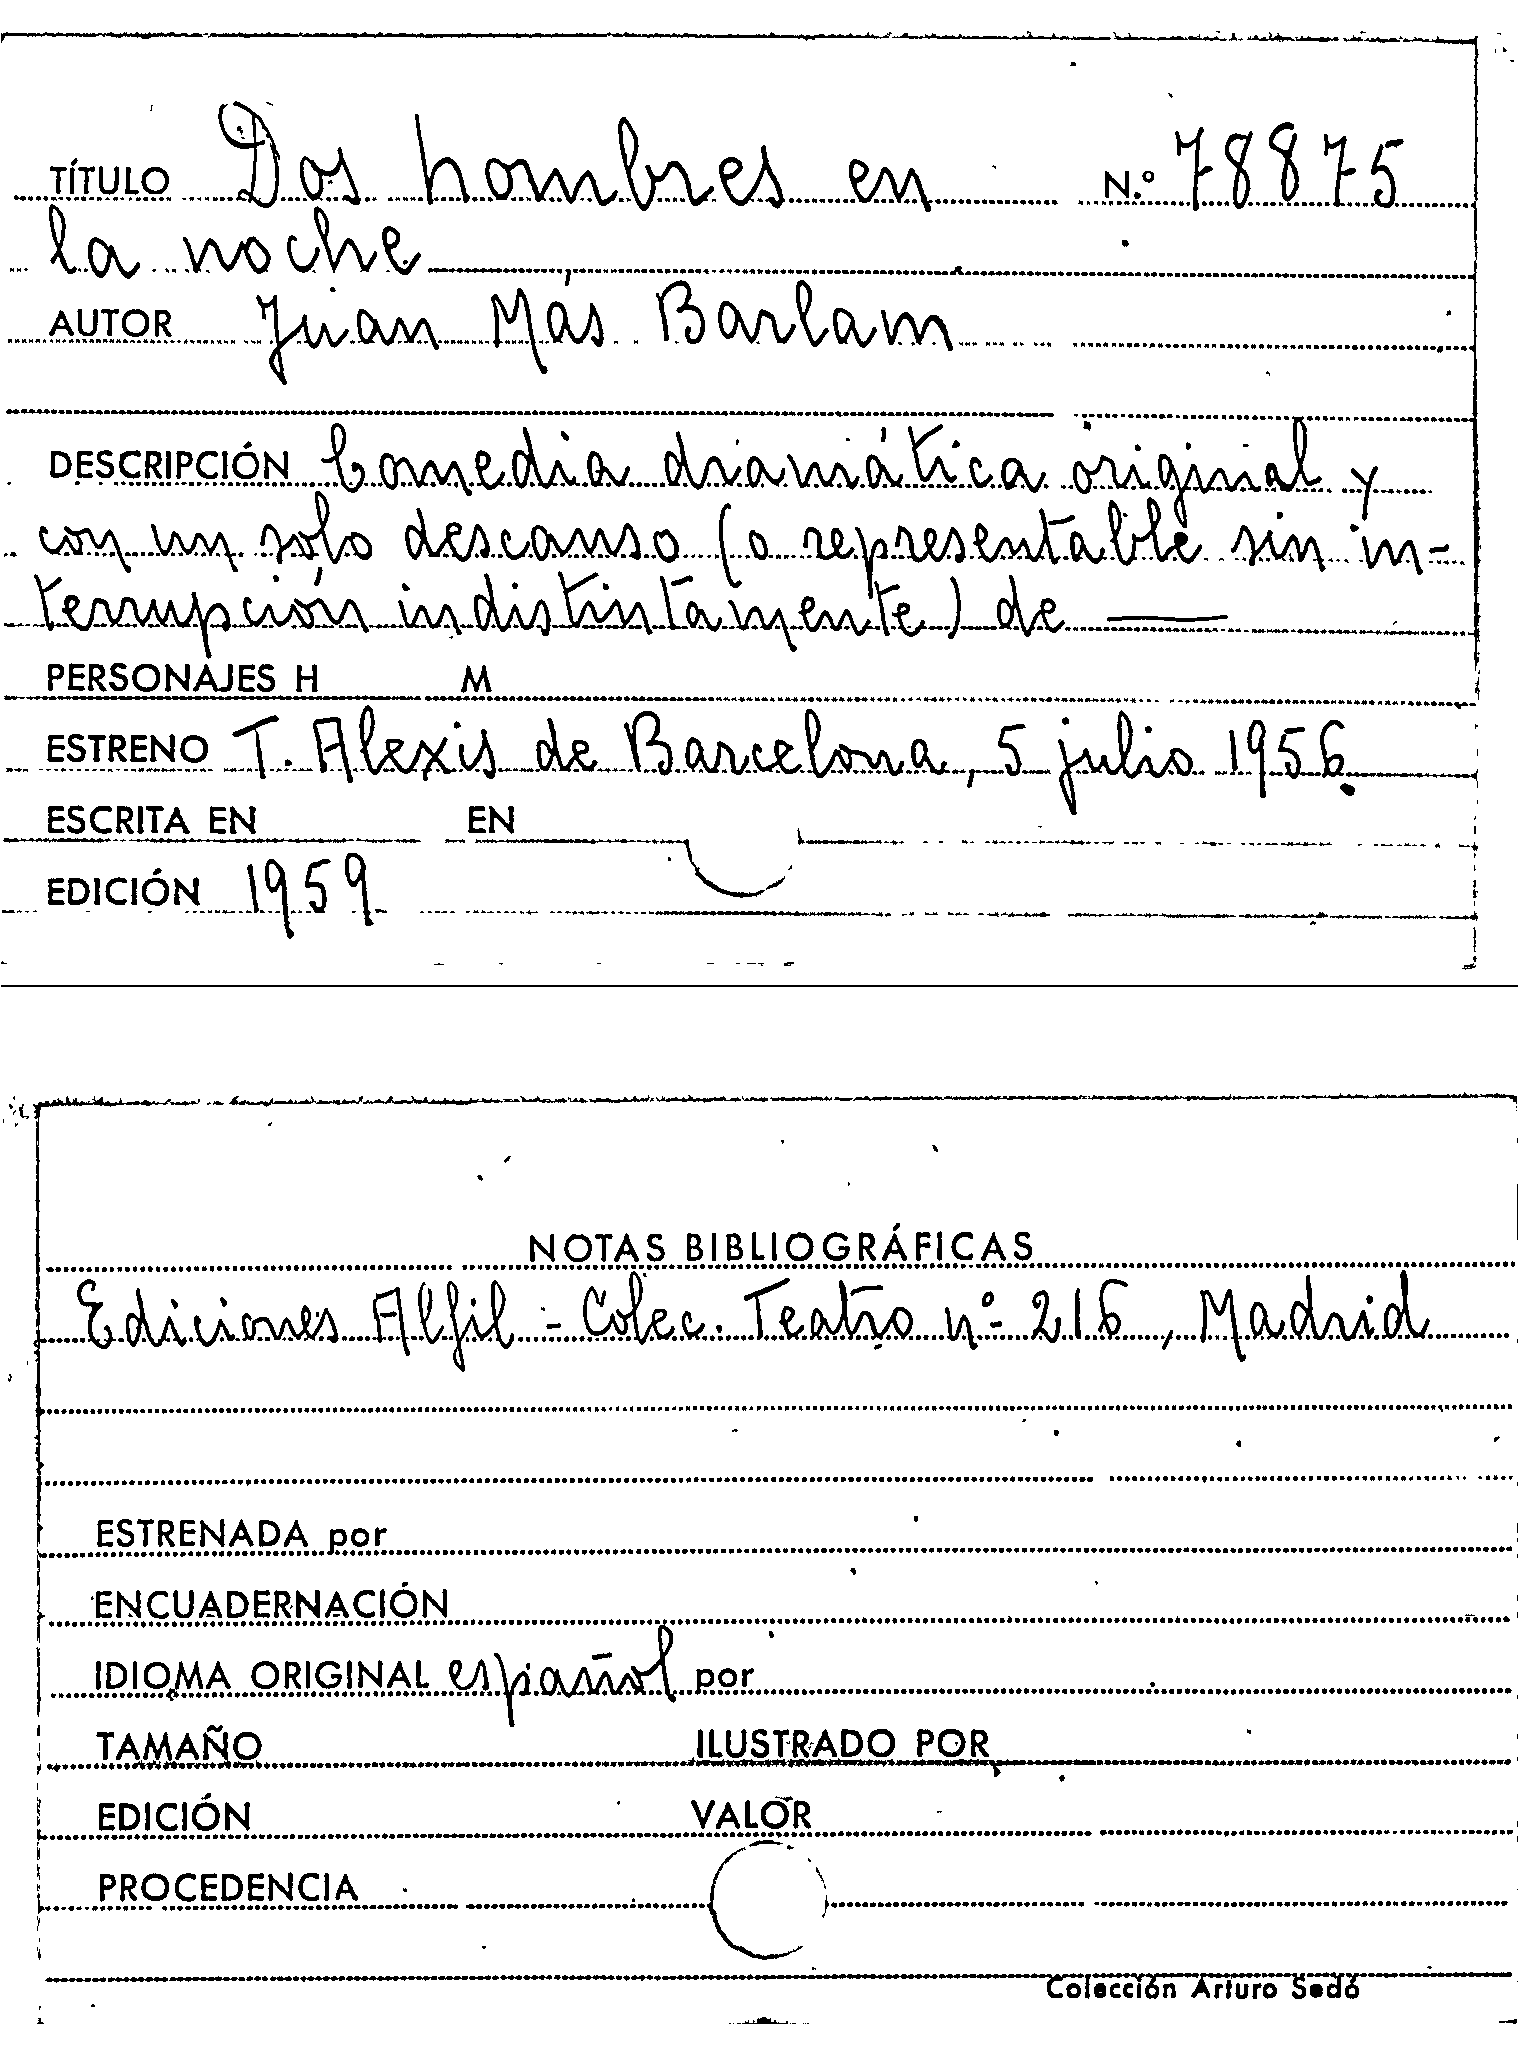 TÍTULO Dos hombres en N.º 78875
la noche
AUTOR Juan Más Barlam
DESCRIPCIÓN Comedia dramática original y
con un solo descanso (o representable sin in-
terrupción indistintamente) de ——
PERSONAJES H M
ESTRENO T. Alexis de Barcelona, 5 julio 1956.
ESCRITA EN EN
EDICIÓN 1959
NOTAS BIBLIOGRÁFICAS
Ediciones Alfil - Colec. Teatro nº 216, Madrid
ESTRENADA por
ENCUADERNACIÓN
IDIOMA ORIGINAL español por
TAMAÑO ILUSTRADO POR
EDICIÓN VALOR
PROCEDENCIA
Colección Arturo Sedó